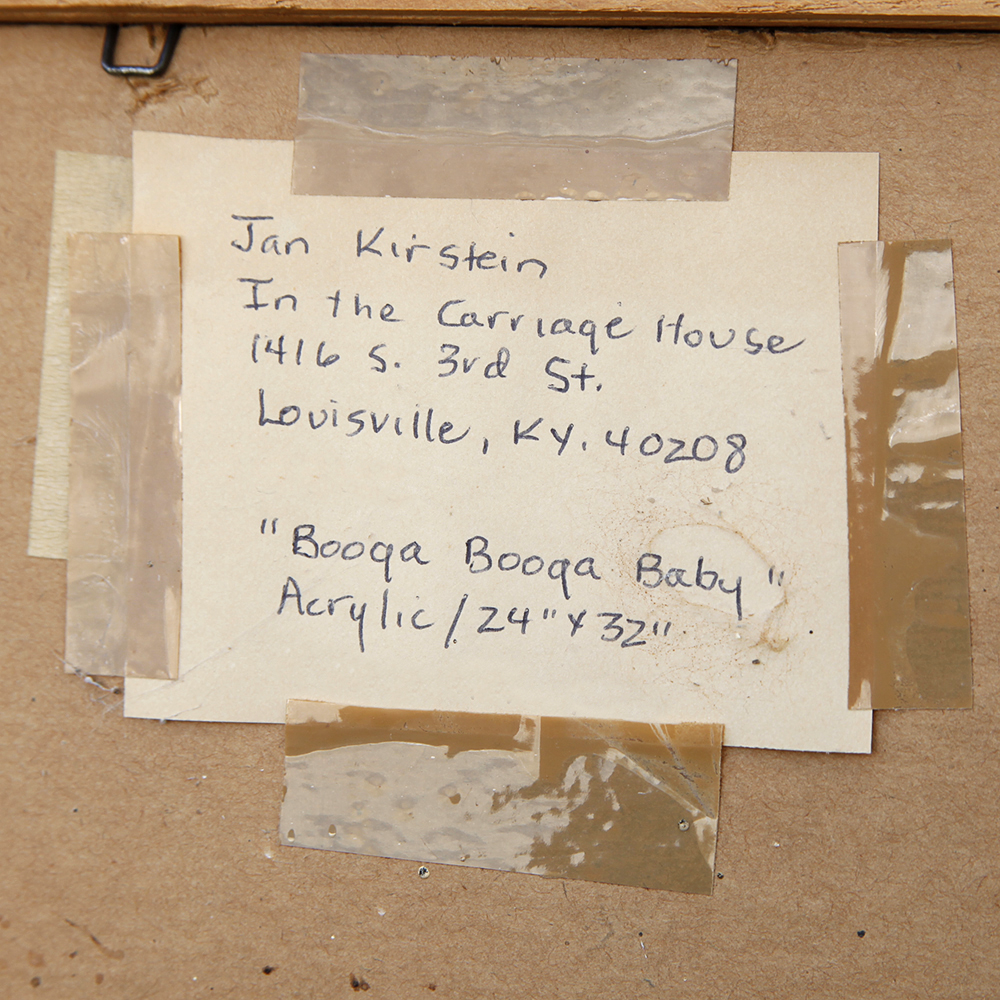 Jan Kirstein
In the Carriage House
1416 S. 3rd St.
Louisville, KY. 40208
"Booga Booga Baby"
Acrylic / 24" x 32"